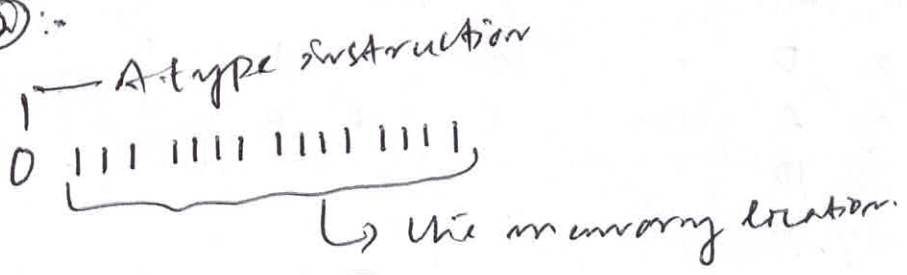 a) :-
A-type instruction
0 111 1111 1111 1111
the memory location.